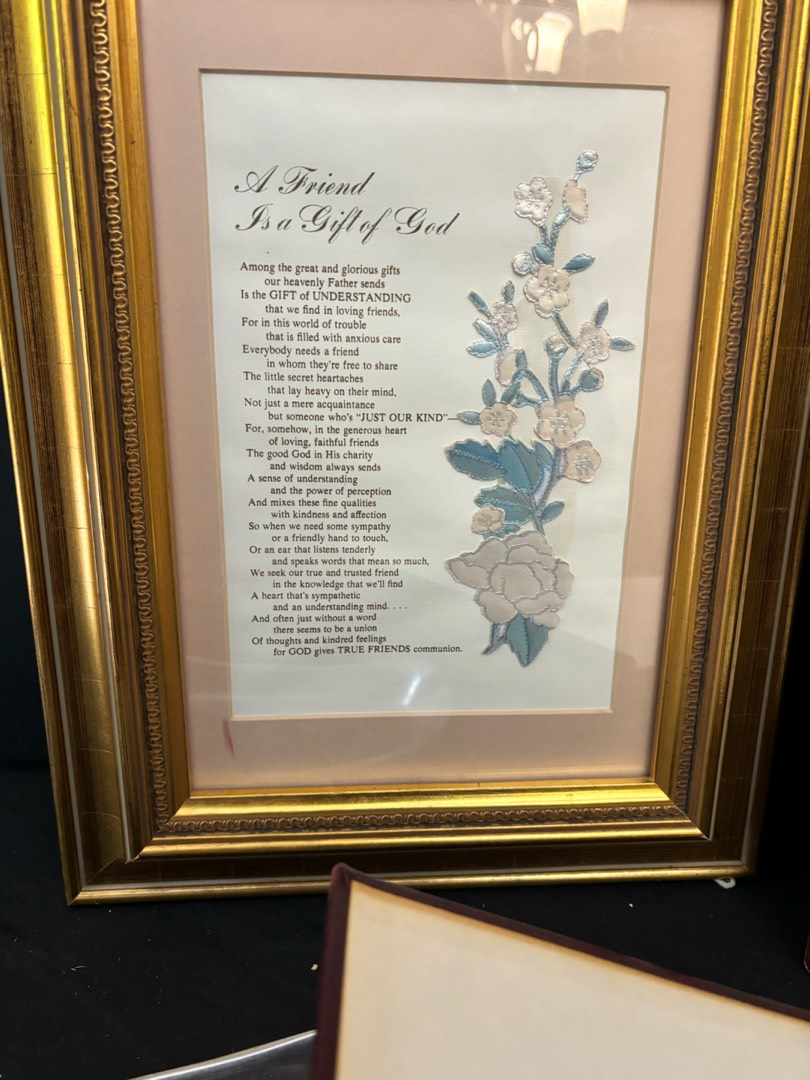 A Friend
Is a Gift of God
Among the great and glorious gifts
our heavenly Father sends
Is the GIFT of UNDERSTANDING
that we find in loving friends,
For in this world of trouble
that is filled with anxious care
Everybody needs a friend
in whom they're free to share
The little secret heartaches
that lay heavy on their mind,
Not just a mere acquaintance
but someone who's "JUST OUR KIND"—
For, somehow, in the generous heart
of loving, faithful friends
The good God in His charity
and wisdom always sends
A sense of understanding
and the power of perception
And mixes these fine qualities
with kindness and affection
So when we need some sympathy
or a friendly hand to touch,
Or an ear that listens tenderly
and speaks words that mean so much,
We seek our true and trusted friend
in the knowledge that we'll find
A heart that's sympathetic
and an understanding mind. . . .
And often just without a word
there seems to be a union
Of thoughts and kindred feelings
for GOD gives TRUE FRIENDS communion.